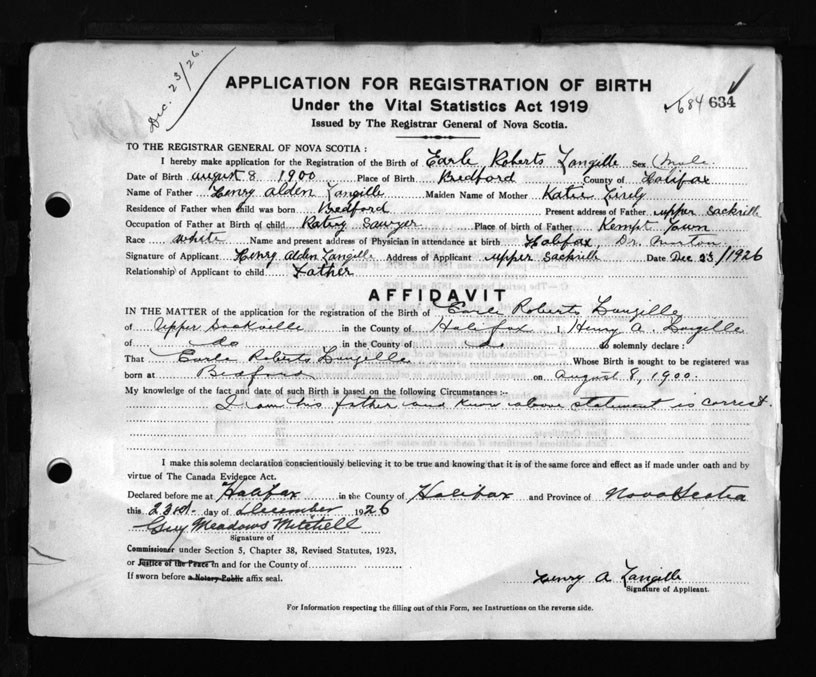 Dec. 23/26.
APPLICATION FOR REGISTRATION OF BIRTH
Under the Vital Statistics Act 1919
684 634
Issued by The Registrar General of Nova Scotia.
TO THE REGISTRAR GENERAL OF NOVA SCOTIA :
I hereby make application for the Registration of the Birth of Earle Roberts Langille Sex Male
Date of Birth august 8 1900 Place of Birth Bedford County of Halifax
Name of Father Henry Alden Langille Maiden Name of Mother Katie
Residence of Father when child was born Bedford Present address of Father upper Sackville
Occupation of Father at Birth of child Sawyer Place of birth of Father Kempt Town
Race white Name and present address of Physician in attendance at birth Halifax, Dr. Morton
Signature of Applicant Henry Alden Langille Address of Applicant upper Sackville Date Dec 23/1926
Relationship of Applicant to child Father
AFFIDAVIT
IN THE MATTER of the application for the registration of the Birth of Earle Roberts Langille
of Upper Sackville in the County of Halifax I, Henry A. Langille
of do in the County of do do solemnly declare :
That Earle Roberts Langille Whose Birth is sought to be registered was
born at Bedford on August 8, 1900.
My knowledge of the fact and date of such Birth is based on the following Circumstances :-
I am his father and know above statement is correct.
I make this solemn declaration conscientiously believing it to be true and knowing that it is of the same force and effect as if made under oath and by
virtue of The Canada Evidence Act.
Declared before me at Halifax in the County of Halifax and Province of Nova Scotia
this 23rd day of December 1926
Guy Meadows Mitchell
Signature of
Commissioner under Section 5, Chapter 38, Revised Statutes, 1923,
or Justice of the Peace in and for the County of
If sworn before a Notary Public affix seal.
Henry A Langille
Signature of Applicant.
For Information respecting the filling out of this Form, see Instructions on the reverse side.